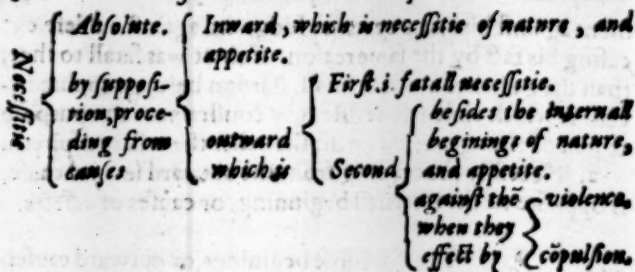 Necessitie
Absolute.
by supposi-
tion, proce-
ding from
causes
Inward, which is necessitie of nature, and
appetite.
outward
which is
First .i. fatall necessitie.
Second
besides the internall
beginings of nature,
and appetite.
against thẽ
when they
effect by
violence.
cõpulsion.